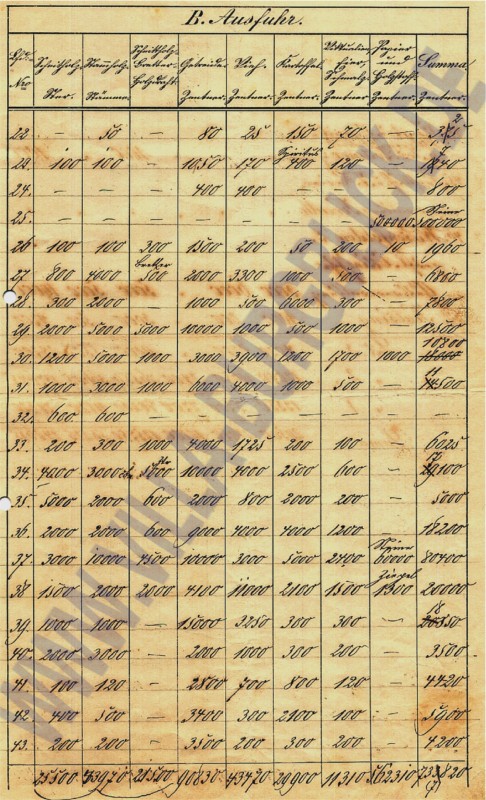 B. Ausfuhr.
Lfde. Nro | Scheitholz Ster. | Stammholz Stämme. | Scheitholz Bretter Holzdraht | Getreide Zentner. | Vieh. Zentner. | Kartoffel. Zentner. | Viktualien, Eier, Schmalz Zentner. | Papier und Holzstoff. Zentner. | Summa. Zentner.
22. | – | 50 | – | 80 | 25 | 150 | 70 | – | 325
23. | 100 | 100 | – | 1050 | 170 | Spiritus 400 | 120 | – | 1740
24. | – | – | – | 400 | 400 | – | – | – | 800
25. | – | – | – | – | – | – | – | 500000 | Steine 500000
26. | 100 | 100 | 300 | 1500 | 200 | 50 | 200 | 10 | 1960
27. | 800 | 4000 | Bretter 500 | 2000 | 3300 | 1000 | 500 | – | 6800
28. | 300 | 2000 | – | 1000 | 500 | 6000 | 300 | – | 7800
29. | 2000 | 5000 | 5000 | 10000 | 1000 | 500 | 1000 | – | 12500
30. | 1200 | 5000 | 1000 | 3000 | 3900 | 1200 | 1700 | 1000 | 10800
31. | 1000 | 3000 | 1000 | 6000 | 4000 | 1000 | 500 | – | 11500
32. | 600 | 600 | – | – | – | – | – | – | –
33. | 200 | 300 | 1000 | 4000 | 1725 | 200 | 100 | – | 6025
34. | 4000 | 3000 | 5000 | 10000 | 4000 | 2500 | 600 | – | 17100
35. | 5000 | 2000 | 600 | 2000 | 800 | 2000 | 200 | – | 5000
36. | 2000 | 2000 | 600 | 9000 | 4000 | 4000 | 1200 | – | 18200
37. | 3000 | 10000 | 4500 | 10000 | 3000 | 5000 | 2400 | Steine 60000 | 80400
38. | 1500 | 2000 | 2000 | 4100 | 11000 | 2100 | 1500 | Ziegel 1300 | 20000
39. | 1000 | 1000 | – | 15000 | 3250 | 300 | 300 | – | 18850
40. | 2000 | 3000 | – | 2000 | 1000 | 300 | 200 | – | 3500
41. | 100 | 120 | – | 2800 | 700 | 800 | 120 | – | 4420
42. | 400 | 500 | – | 3400 | 300 | 2100 | 100 | – | 5900
43. | 200 | 200 | – | 3500 | 200 | 300 | 200 | – | 4200
25500 | 43970 | 21500 | 90830 | 43470 | 29900 | 11310 | 562310 | 737820
WWW.VILLA-BURGBLICK.DE